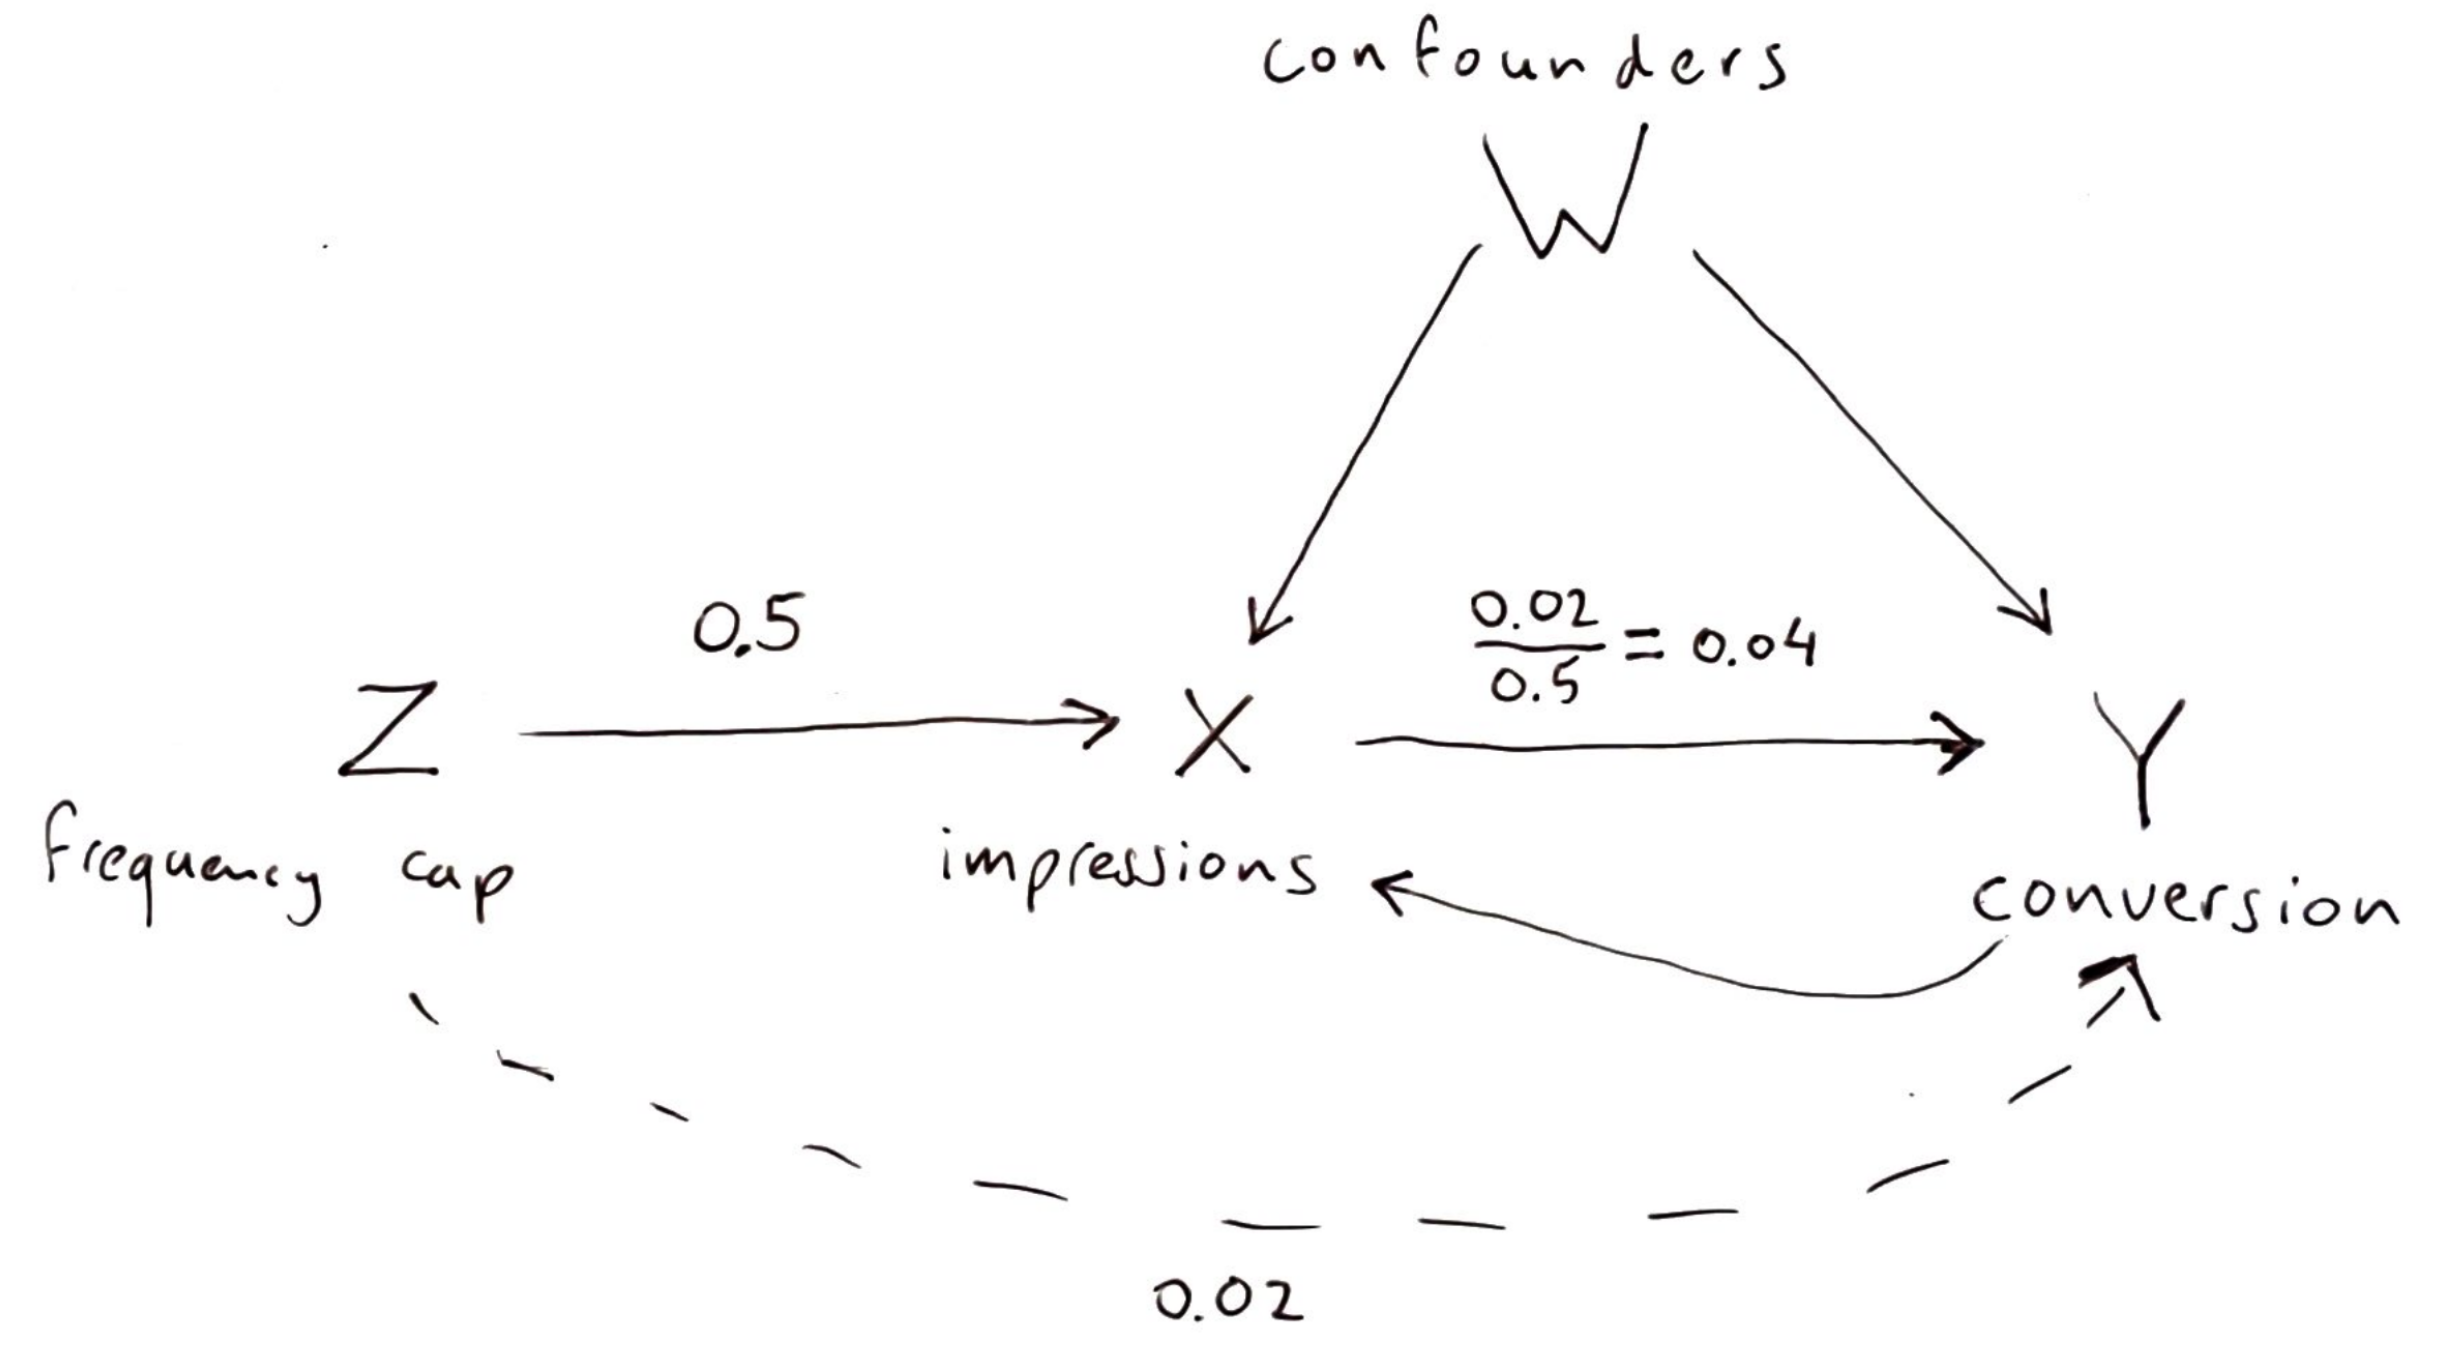 confounders
W
0.5
0.02
0.5
= 0.04
Z
X
Y
frequency cap
impressions
conversion
0.02